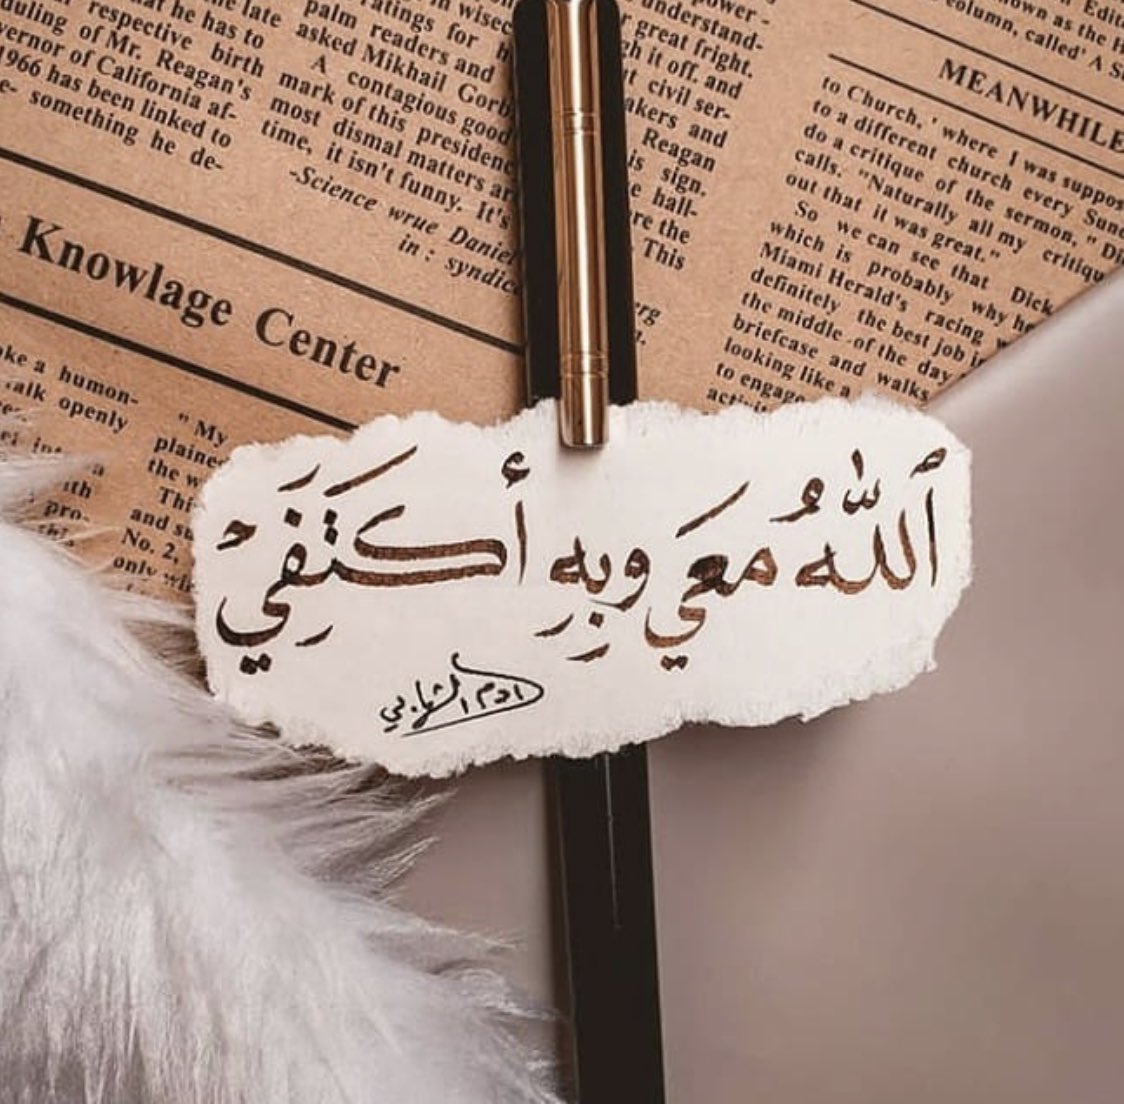 duling of Mr. Reagan's
vernor of California af-
1966 has been linked to
something he de-
palm readers and
asked Mikhail Gorb
A contagious good
mark of this presidenc
most dismal matters ar
time, it isn't funny. It's
-Science wrue Daniel
in : syndic
understand-
great fright.
it off. and
civil ser-
akers and
Reagan
is sign.
hall-
re the
This
MEANWHILE
to Church. ' where I was suppos
to a different church every Sun
do a critique of the sermon, " Di
calls. "Naturally all my critiqu
out that it was great."
So we can see that Dick
which is probably why he
Miami Herald's racing
definitely the best job i
the middle .of the day
briefcase and walks
looking like a
to engage
Knowlage Center
ke a humon-
alk openly
" My
plaine
the w
This
and su
No. 2,
only
ٱللّٰهُ مَعَي وبِهِ أَكتَفَيْ
ادم الشهابي